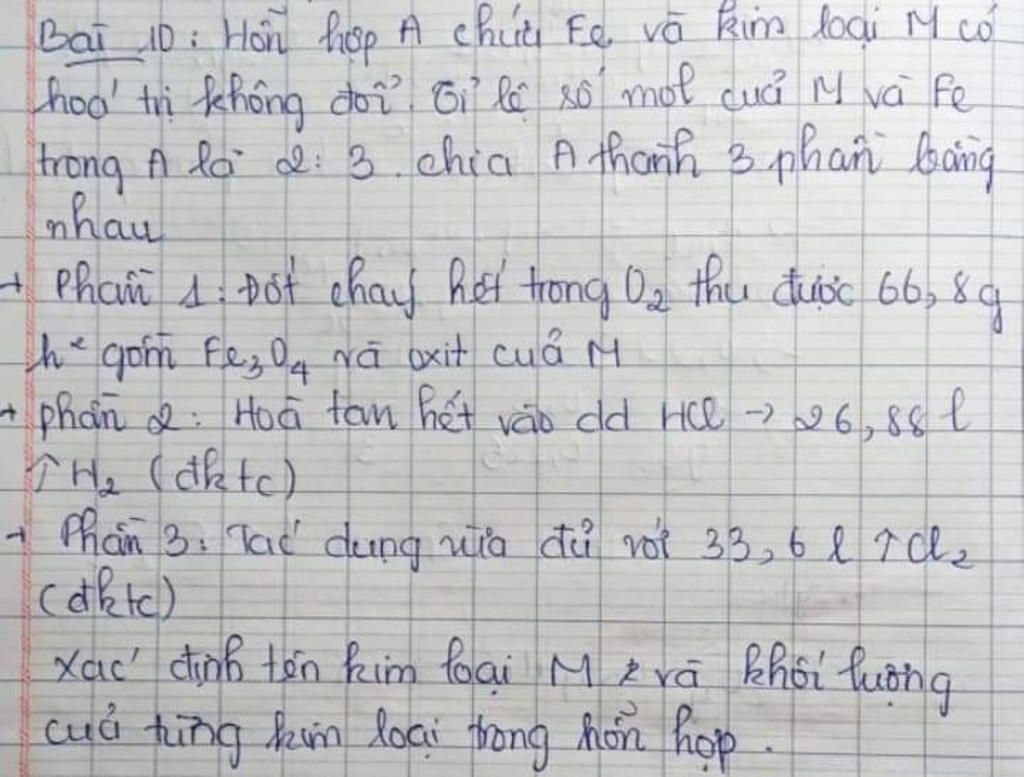 Bài 10: Hỗn hợp A chứa Fe và kim loại M có
hoá trị không đổi. Tỉ lệ số mol của M và Fe
trong A là 2:3. chia A thành 3 phần bằng
nhau
+ Phần 1: Đốt cháy hết trong O₂ thu được 66,8g
h² gồm Fe₃O₄ và oxit của M
+ phần 2: Hoà tan hết vào dd HCl → 26,88 l
↑ H₂ (đktc)
+ Phần 3: Tác dụng vừa đủ với 33,6 l ↑ Cl₂
(đktc)
Xác định tên kim loại M và khối lượng
của từng kim loại trong hỗn hợp.